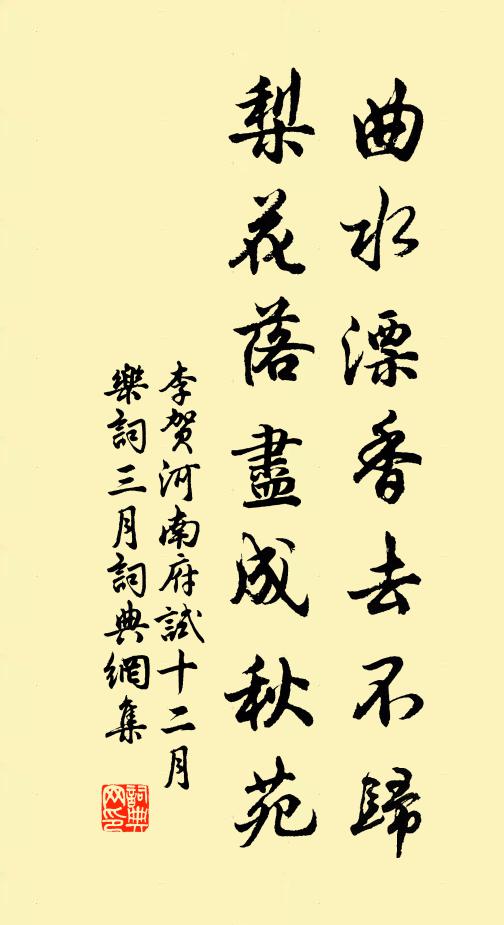 曲水漂香去不歸
梨花落盡成秋苑
李贺河南府試十二月
樂詞三月詞典網集
詞典
网印